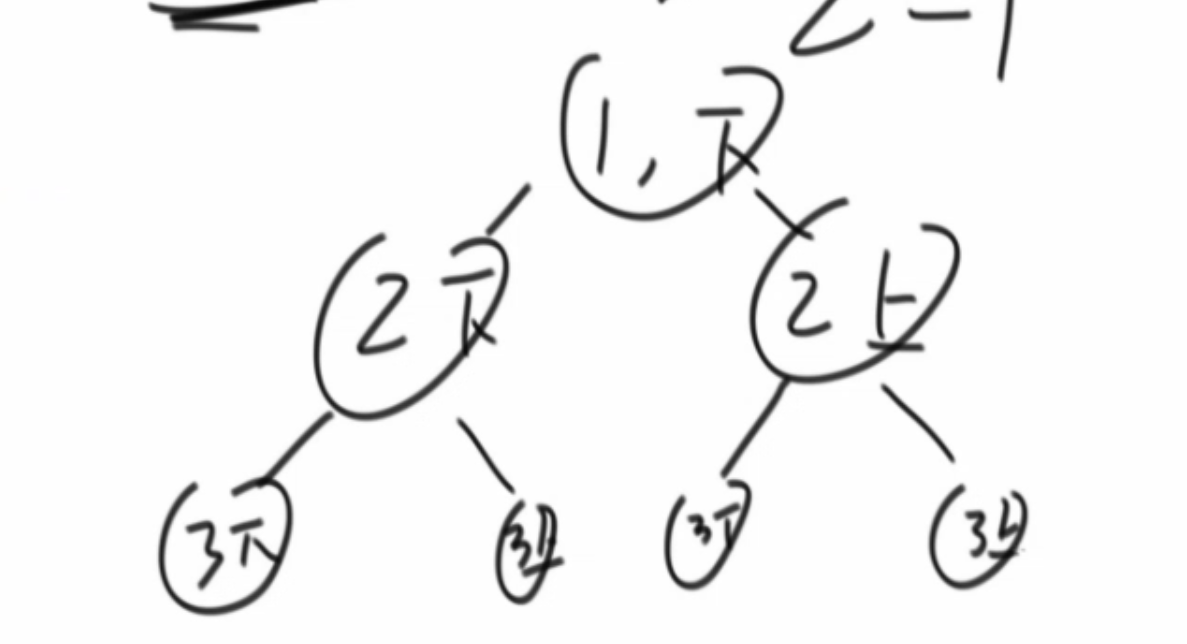 2 - 1
1, 下
2 下
2 上
3下
3上
3下
3上